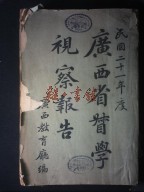 民國二十一年度
廣西省督學
視察報告
廣西教育廳編